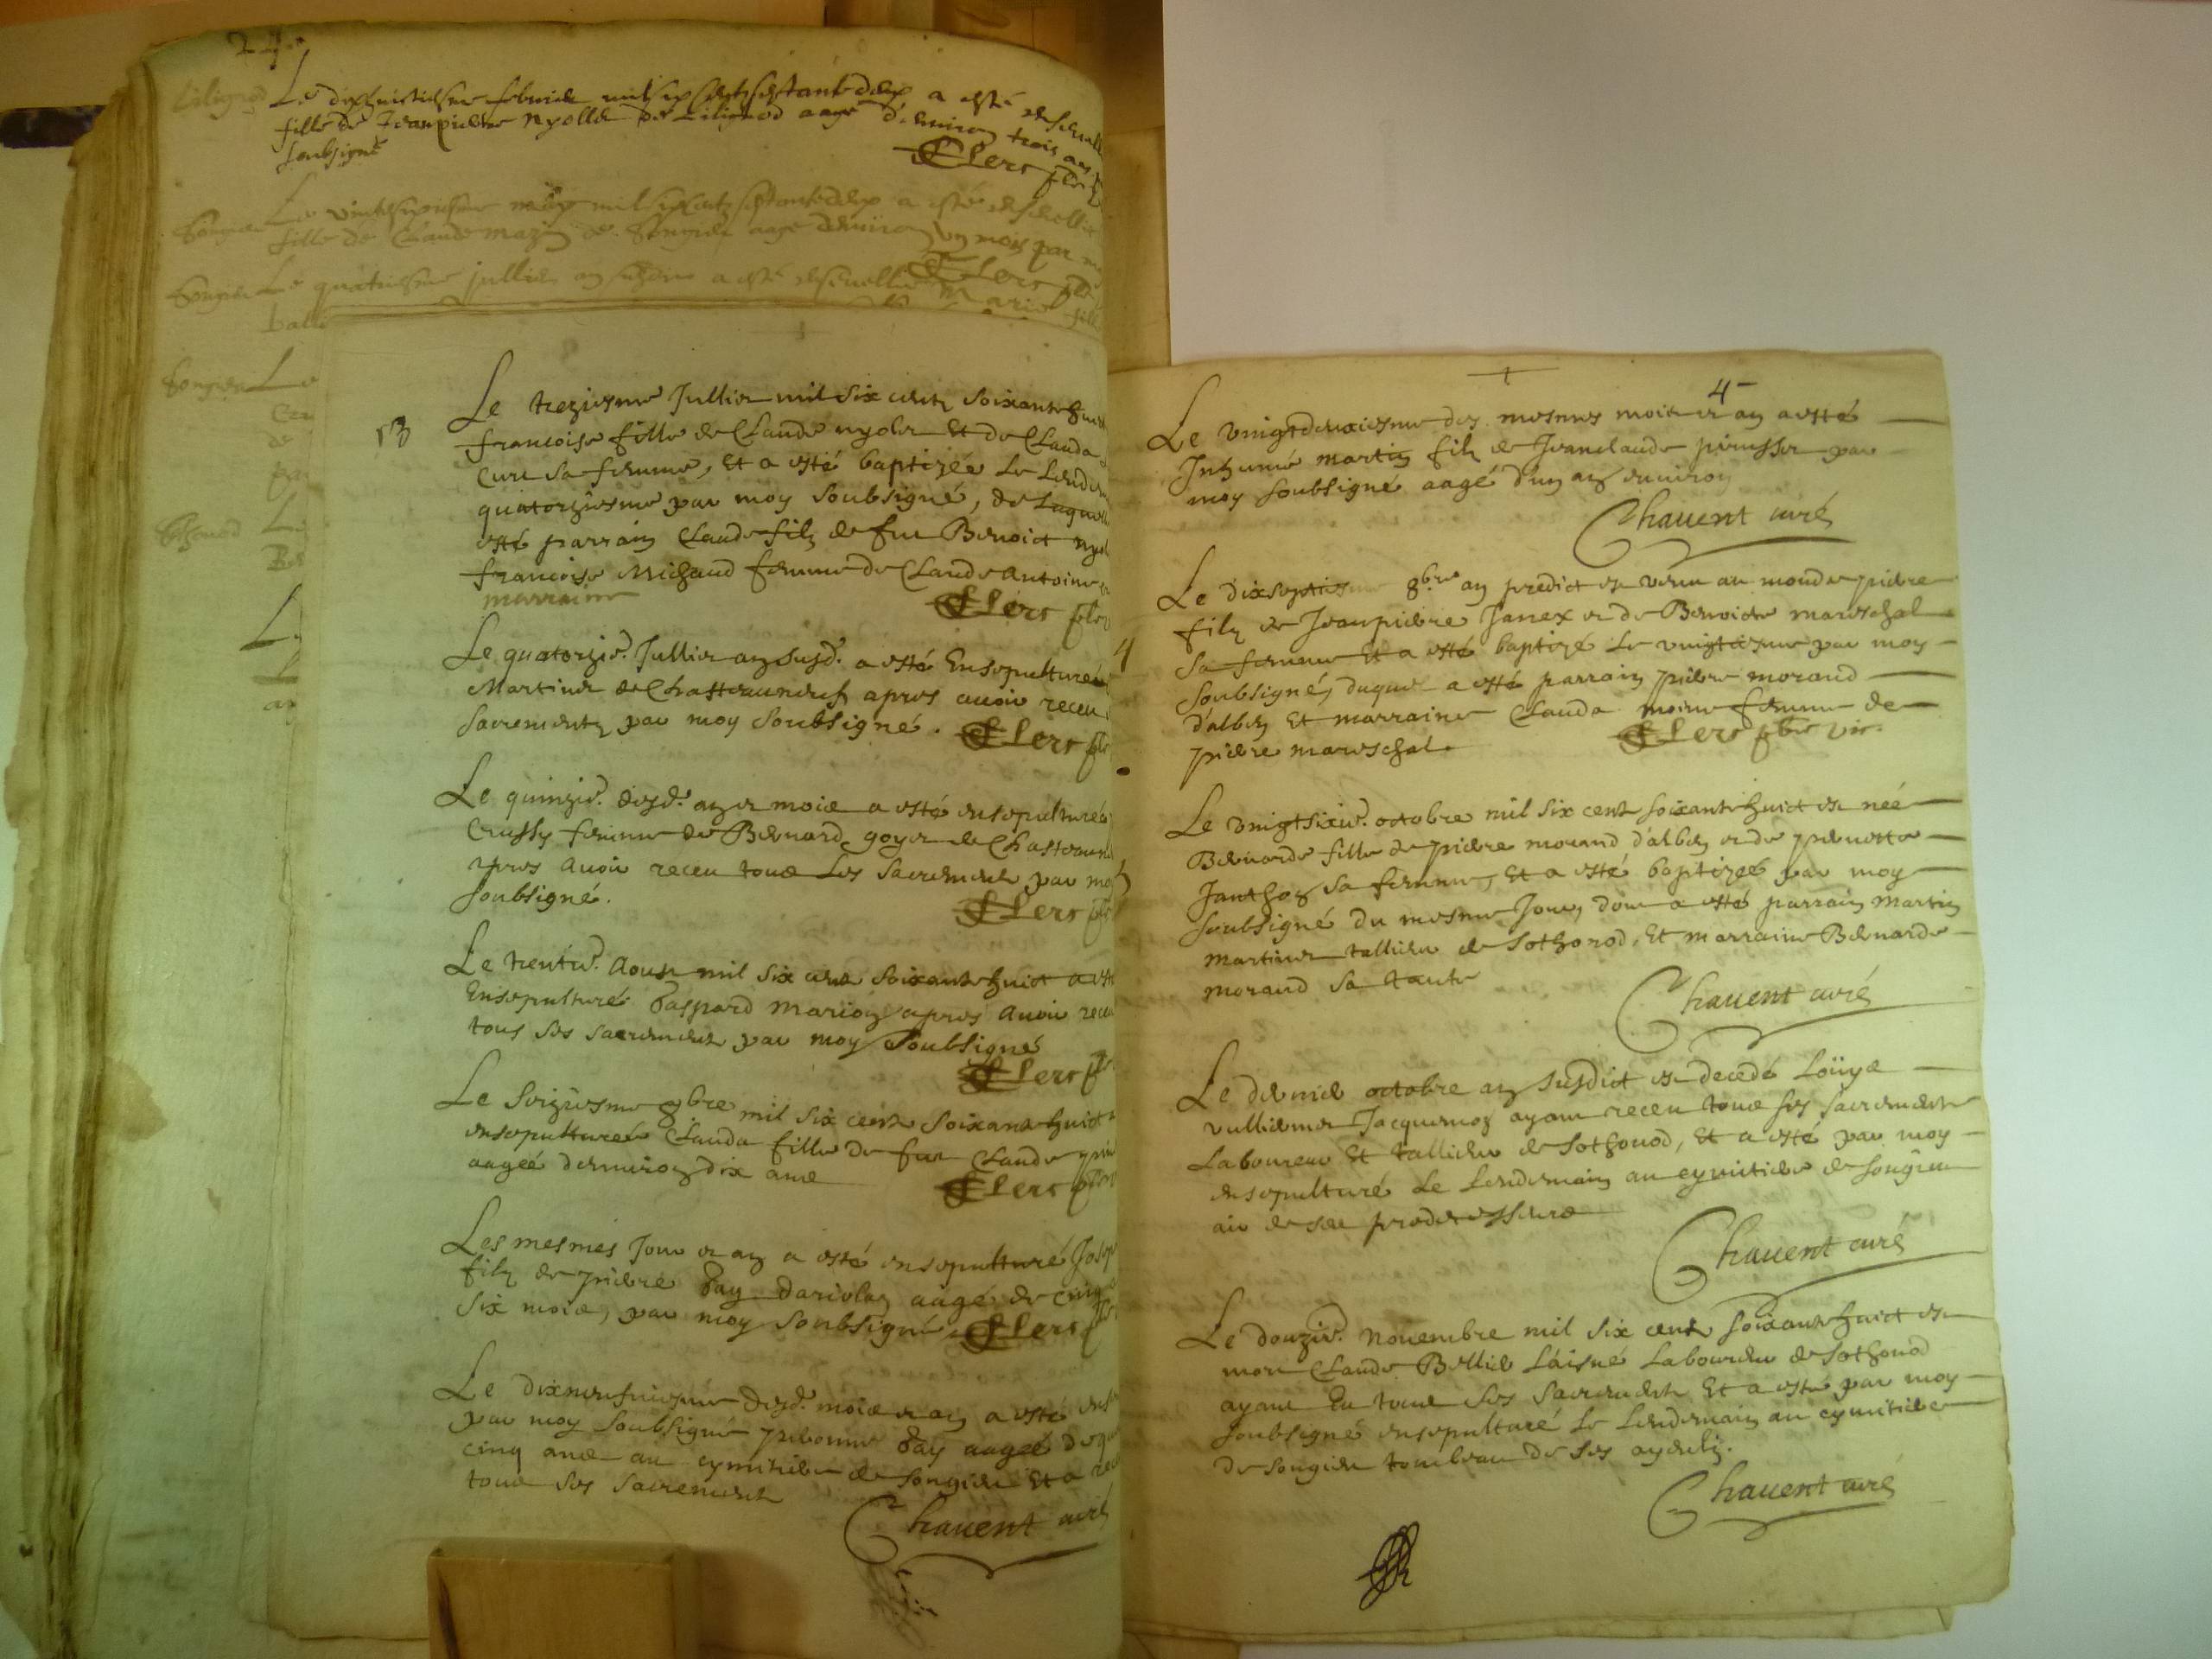 24
Lilignod
Le dixhuictiesme febvrier mil six cents septante deux a esté ensevelli
fille de Jeanpierre nyollet de Lilignod aage d'environ trois ans
soubsigné
Clerc pbre
Songieu
Le vintesixiesme mil six cents septante deux a esté ensevellie
fille de Claude de Songieu aage denviron un mois par
Clerc
Songieu
Le quatriesme juillet an susdict a esté ensevellie Marie fille
Songieu Le
de
par
Sothonod
13
Le treziesme Jullier mil six cents soixante huict
francoise fille de Claude nyolet Et de Clauda
Curt sa femme, Et a esté baptizée le lende
quatorziesme par moy soubsigné, de laquelle
esté parrain Claude filz de feu Benoict nyol
francoise Michaud femme de Claude Antoine
marraine
Clerc pbre
Le quatorzie. Jullier an susd. a esté Ensepulturée
Martiner de Chasteauneuf apres avoir receu
sacrementz par moy soubsigné.
Clerc pbre
Le quinzie. desd. an et mois a esté ensepulturée
Crussy femme de Bernard goyet de Chasteaun
apres avoir receu tous les sacrements par moy
soubsigné.
Clerc pbre
Le trentie. Aoust mil six cents soixante huict a esté
Ensepulturé Gaspard Marion apres avoir receu
tous ses sacrements par moy Soubsigné
Clerc pbre
Le seiziesme 8bre mil six cents soixante huict a
ensepulturée Clauda fille de feu Claude
aagée d'environ dix ans
Clerc pbre
Les mesmes Jour et an a esté ensepulturé Josep
filz de pierre Gay aagé de cinq
six mois, par moy soubsigné.
Clerc pbre
Le dixneufviesme desd. mois et an a esté ense
par moy soubsigné Gay aagée de
cinq ans au cymitiere de Songieu Et a rec
tous ses sacrements
Chauent curé
4
Le vingtdeuxiesme des mesmes mois et an a esté
Inhumé martin filz de Jeanclaude par
moy soubsigné aagé d'un an environ
Chauent curé
4
Le dixseptiesme 8bre an predict est venu au monde pierre
filz de Jeanpierre Janex et de Benoiste mareschal
sa femme Et a esté baptizé le vingtiesme par moy
soubsigné, duquel a esté parrain pierre morand
d'albon Et marraine Clauda moine femme de
pierre mareschal.
Clerc pbre vic.
5
Le vingtsixie. octobre mil six cents soixante huict est née
Bernarde fille de pierre morand d'albon et de
Janthon sa femme, Et a esté baptizée par moy
soubsigné du mesme Jour, dont a esté parrain Martin
Martiner tallieur de Sothonod, Et marraine Bernarde
morand sa tante
Chauent curé
Le dernier octobre an susdict est decedé Loüys
vulliemer Jacquemoz ayant receu tous ses sacrements
Laboureur Et tallieur de Sothonod, Et a esté par moy
ensepulturé Le Lendemain au cymitiere de Songieu
de ses predecesseurs
Chauent curé
Le douzie. Novembre mil six cents soixante huict est
mort Claude Bellier L'aisné Laboureur de Sothonod
ayant Eu tous ses sacrements Et a esté par moy
soubsigné ensepulturé Le Lendemain au cymitiere
de Songieu tombeau de ses ayeulz.
Chauent curé